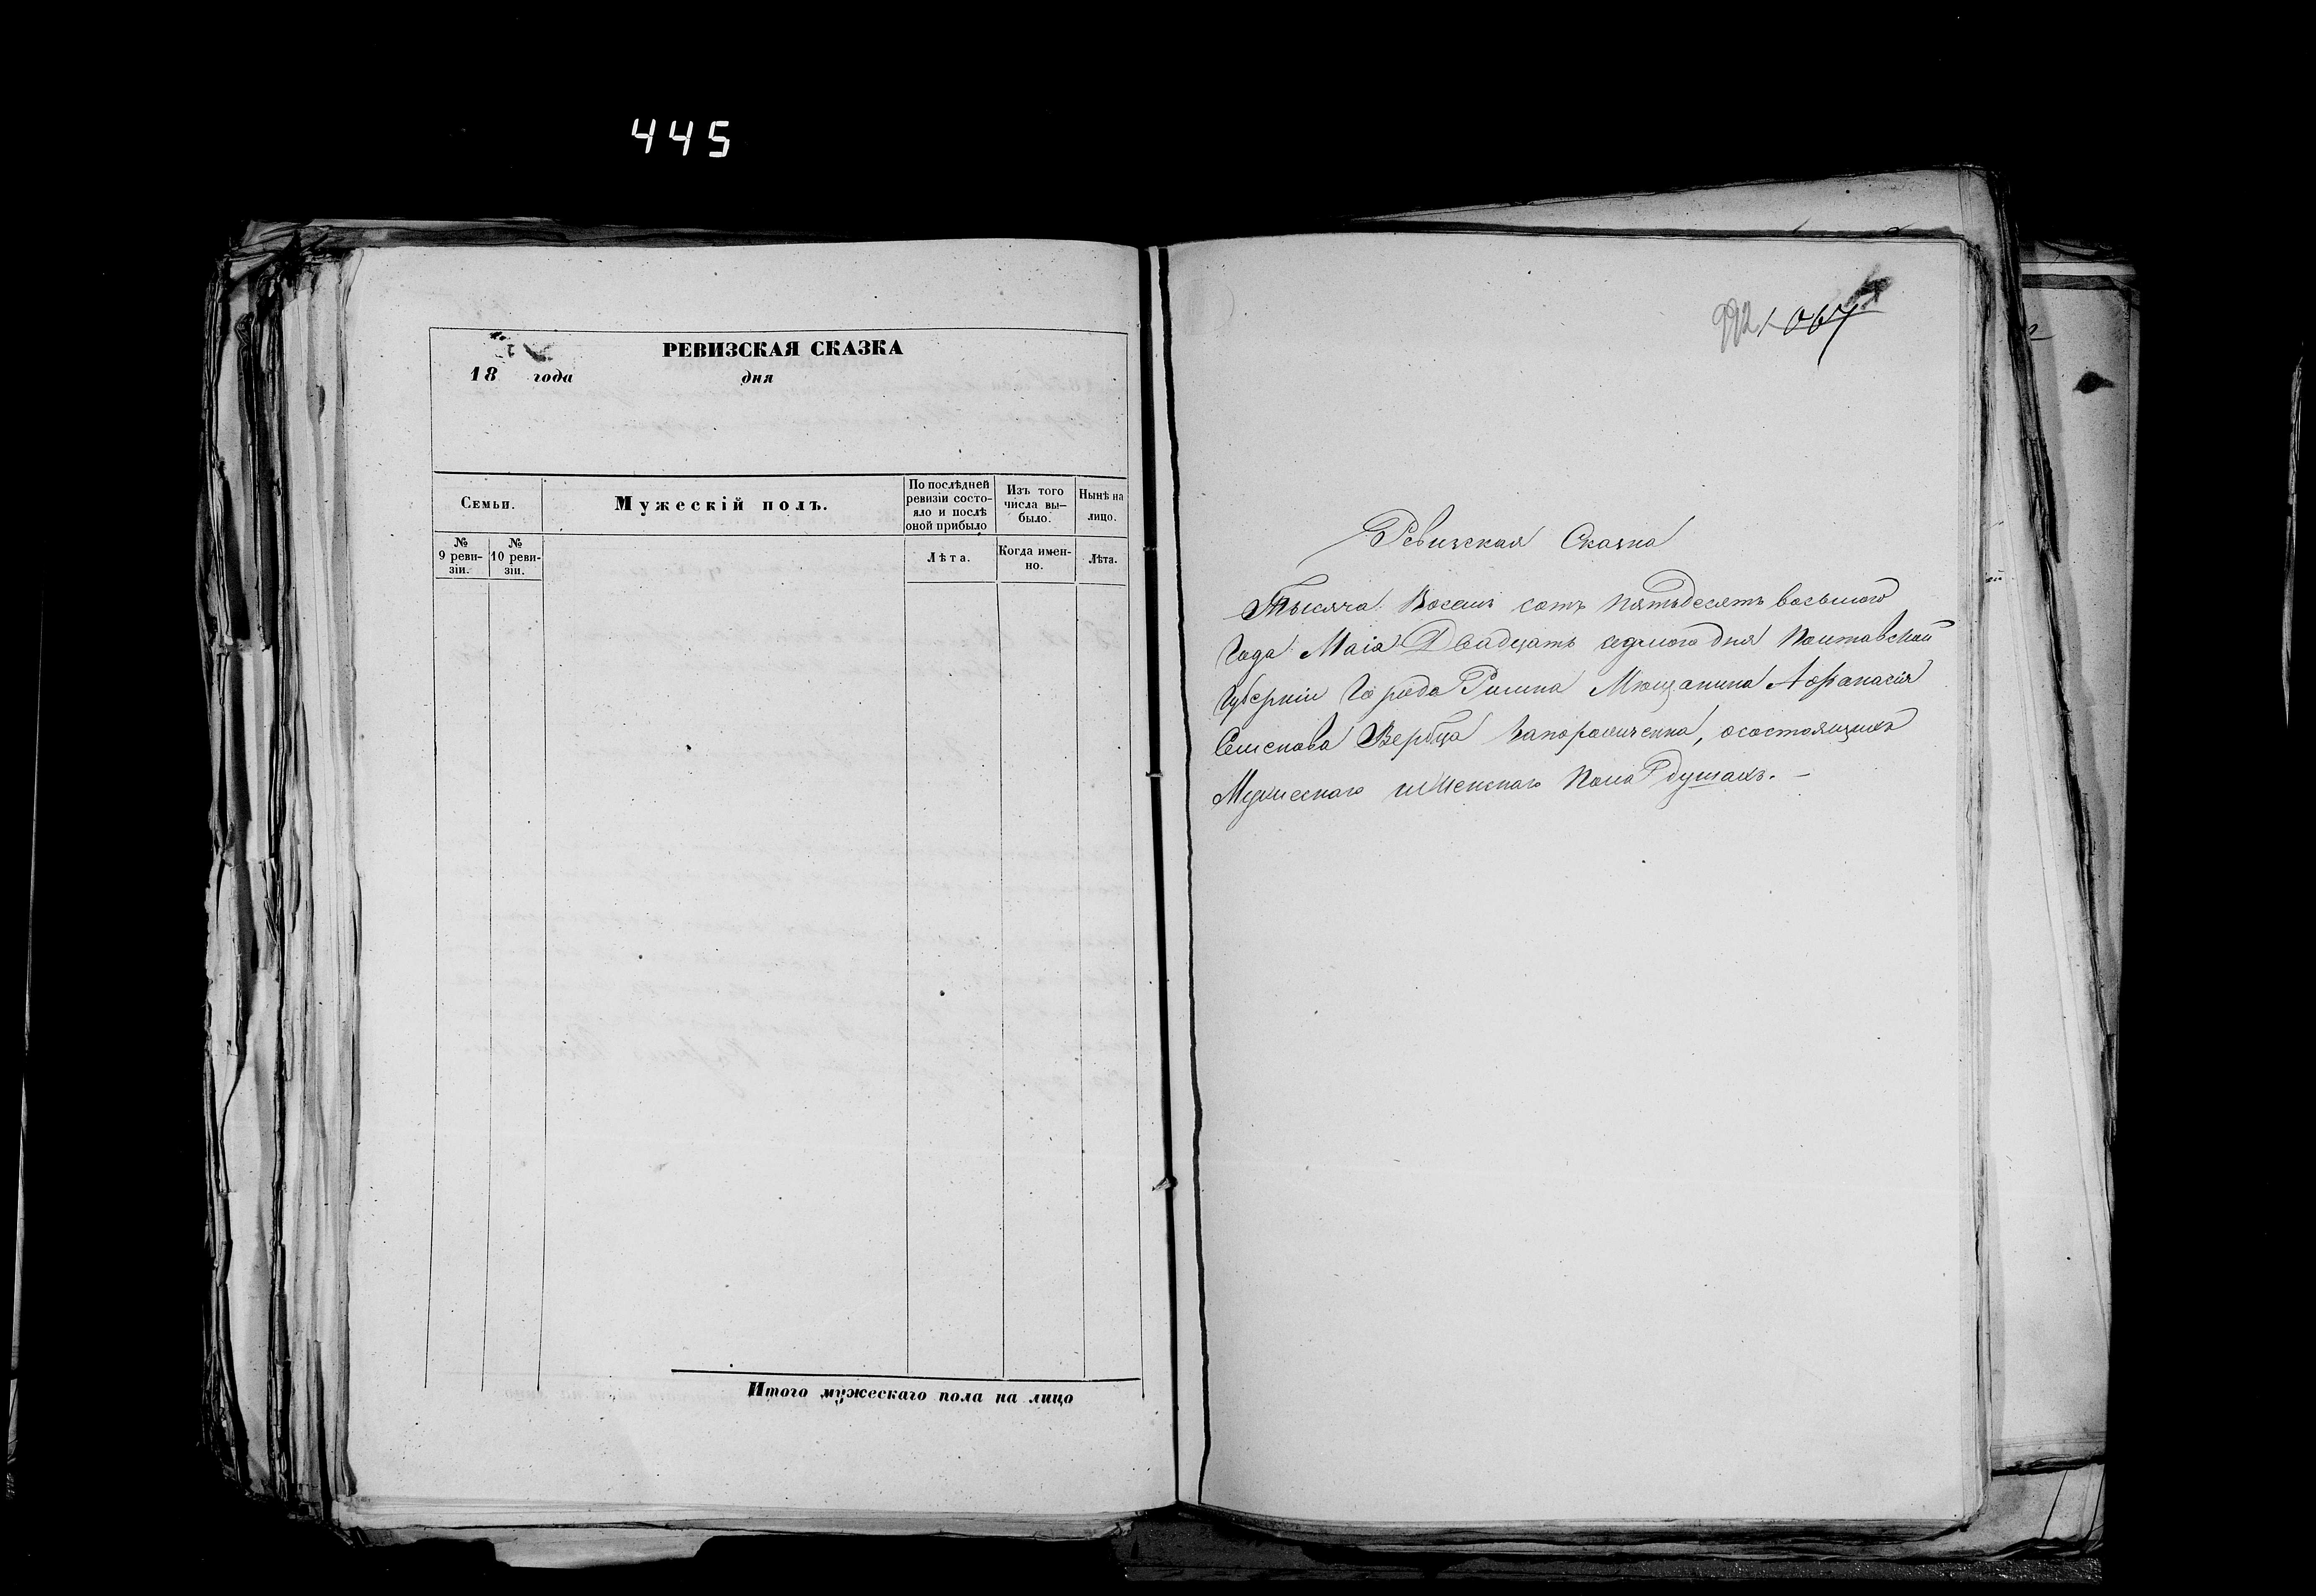 445
РЕВИЗСКАЯ СКАЗКА
18 года дня
Семьи.
Мужескій полъ.
По послѣдней
ревизіи состо-
яло и послѣ
оной прибыло
Изъ того
числа вы-
было.
Нынѣ на
лицо.
№
9 реви-
зіи.
№
10 реви-
зіи.
Лѣта.
Когда имен-
но.
Лѣта.
Итого мужескаго пола на лицо
992
Ревизская Сказка
Тысяча Восемь сотъ пятьдесятъ восьмого
Года Маія Двадцать седмого дня Полтавской
Губерніи Города Ромна Мющанина Афанасія
Семенова Вербца, осостоящихъ
Мужескаго иженскаго пола душахъ. —